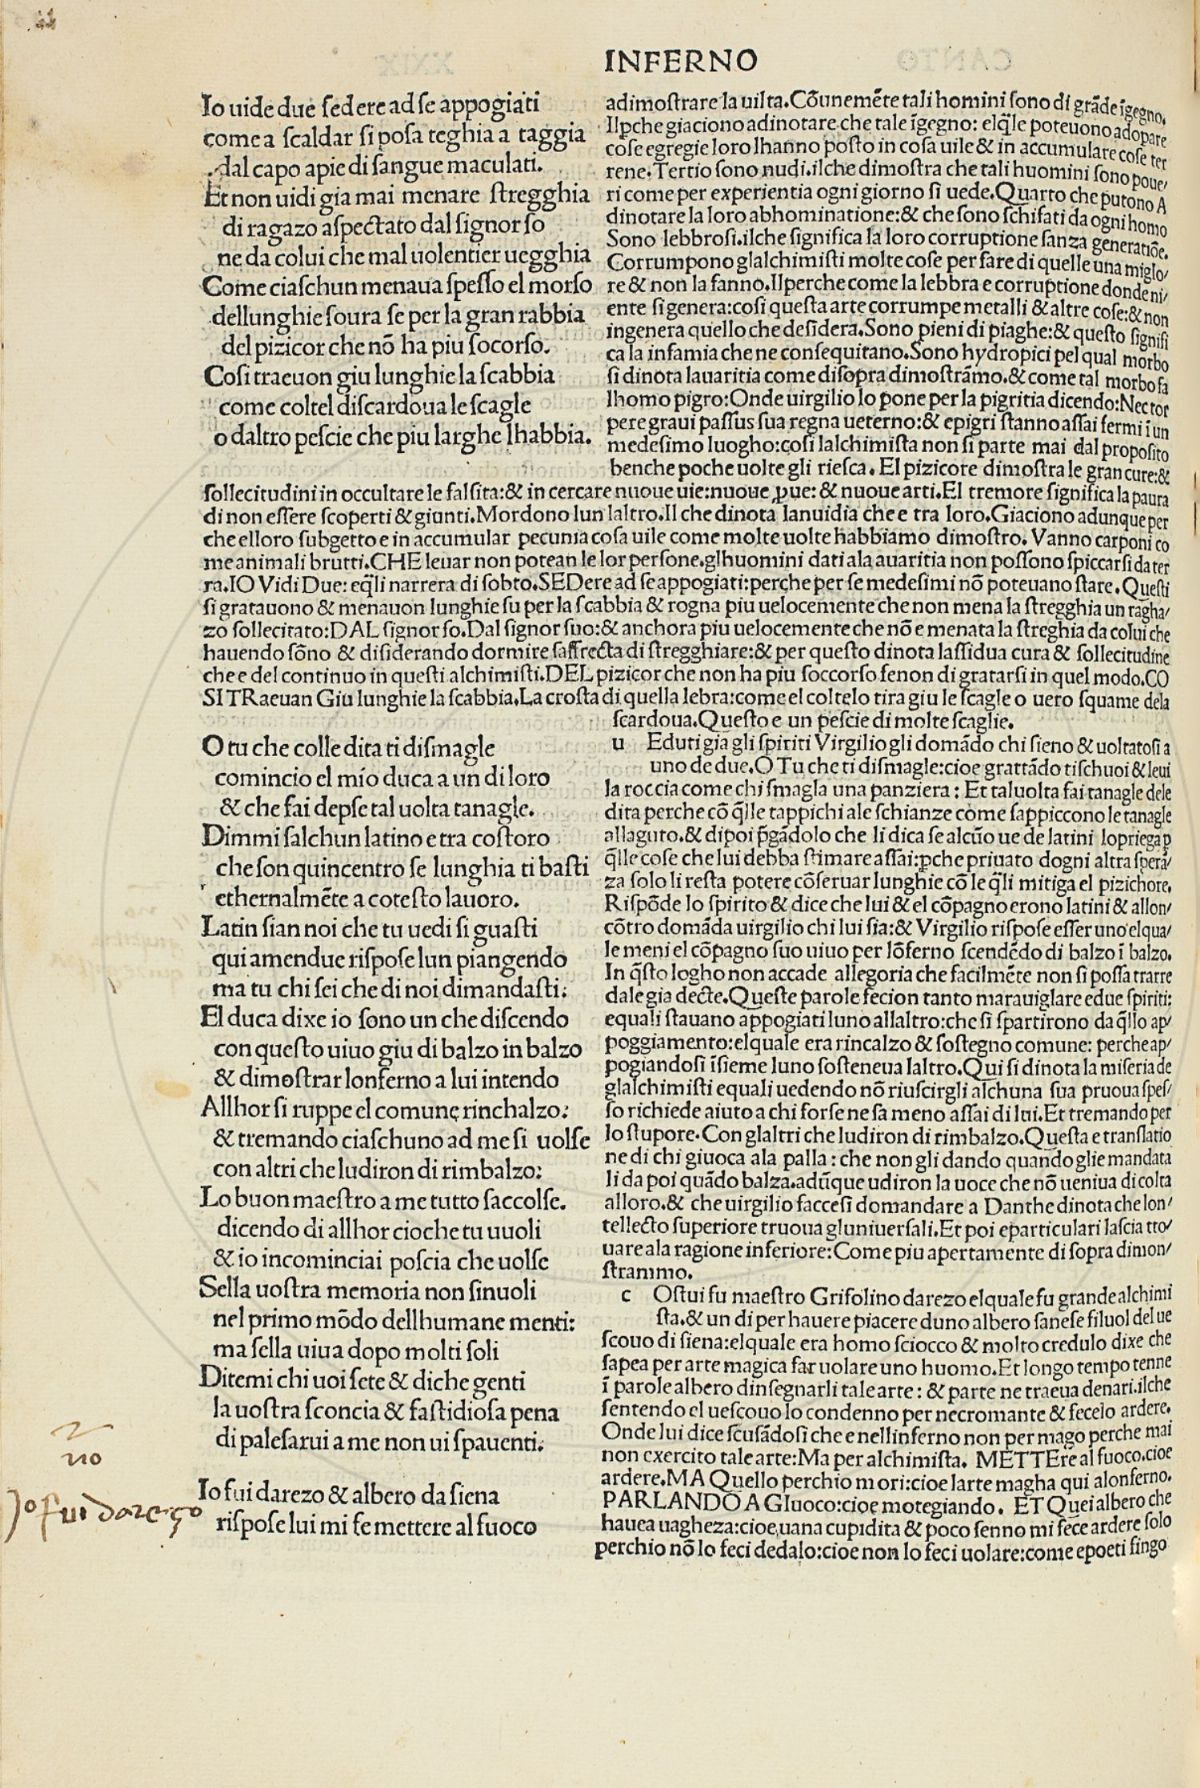 INFERNO
Io uide due ſedere ad ſe appogiati
come a ſcaldar ſi poſa teghia a taggia
dal capo apie di ſangue maculati.
Et non uidi gia mai menare ſtregghia
di ragazo aſpectato dal ſignor ſo
ne da colui che mal uolentier uegghia
Come ciaſchun menaua ſpeſſo el morſo
dellunghie ſoura ſe per la gran rabbia
del pizicor che nō ha piu ſocorſo.
Coſi traeuon giu lunghie la ſcabbia
come coltel diſcardoua le ſcagle
o daltro peſcie che piu larghe lhabbia.
adimoſtrare la uilta. Cōunemēte tali homini ſono di grāde īgegno.
Ilpche giaciono adinotare che tale īgegno: elq̄le poteuono adopare
coſe egregie loro lhanno poſto in coſa uile & in accumulare coſe ter
rene. Tertio ſono nudi. ilche dimoſtra che tali huomini ſono poue/
ri come per experientia ogni giorno ſi uede. Quarto che putono A
dinotare la loro abhominatione: & che ſono ſchifati da ogni homo
Sono lebbroſi. ilche ſignifica la loro corruptione ſanza generatiōe.
Corrumpono glalchimiſti molte coſe per fare di quelle una miglo/
re & non la fanno. Ilperche come la lebbra e corruptione donde ni/
ente ſi genera: coſi queſta arte corrumpe metalli & altre coſe: & non
ingenera quello che deſidera. Sono pieni di piaghe: & queſto ſignifi
ca la infamia che ne conſequitano. Sono hydropici pel qual morbo
ſi dinota lauaritia come diſopra dimoſtrāmo. & come tal morbo fa
lhomo pigro: Onde uirgilio lo pone per la pigritia dicendo: Nec tor
pere graui paſſus ſua regna ueterno: & epigri ſtanno aſſai fermi ī un
medeſimo luogho: coſi lalchimiſta non ſi parte mai dal propoſito
benche poche uolte gli rieſca. El pizicore dimoſtra le gran cure: &
ſollecitudini in occultare le falſita: & in cercare nuoue uie: nuoue pue: & nuoue arti. El tremore ſignifica la paura
di non eſſere ſcoperti & giunti. Mordono lun laltro. Il che dinota lanuidia che e tra loro. Giaciono adunque per
che elloro ſubgetto e in accumular pecunia coſa uile come molte uolte habbiamo dimoſtro. Vanno carponi co
me animali brutti. CHE leuar non potean le lor perſone. glhuomini dati ala auaritia non poſſono ſpiccarſi da ter
ra. IO Vidi Due: eq̄li narrera di ſobto. SEDere ad ſe appogiati: perche per ſe medeſimi nō poteuano ſtare. Queſti
ſi gratauono & menauon lunghie ſu per la ſcabbia & rogna piu uelocemente che non mena la ſtregghia un ragha/
zo ſollecitato: DAL ſignor ſo. Dal ſignor ſuo: & anchora piu uelocemente che nō e menata la ſtreghia da colui che
hauendo ſōno & diſiderando dormire ſaffrecta di ſtregghiare: & per queſto dinota laſſidua cura & ſollecitudine
che e del continuo in queſti alchimiſti. DEL pizicor che non ha piu ſoccorſo ſenon di gratarſi in quel modo. CO
SI TRaeuan Giu lunghie la ſcabbia. La croſta di quella lebra: come el coltelo tira giu le ſcagle o uero ſquame dela
ſcardoua. Queſto e un peſcie di molte ſcaglie.
O tu che colle dita ti diſmagle
comincio el mio duca a un di loro
& che fai depſe tal uolta tanagle.
Dimmi ſalchun latino e tra coſtoro
che ſon quincentro ſe lunghia ti baſti
ethernalmēte a coteſto lauoro.
Latin ſian noi che tu uedi ſi guaſti
qui amendue riſpoſe lun piangendo
ma tu chi ſei che di noi dimandaſti:
El duca dixe io ſono un che diſcendo
con queſto uiuo giu di balzo in balzo
& dimoſtrar lonferno a lui intendo
Allhor ſi ruppe el comune rinchalzo:
& tremando ciaſchuno ad me ſi uolſe
con altri che ludiron di rimbalzo:
Lo buon maeſtro a me tutto ſaccolſe.
dicendo di allhor cioche tu uuoli
& io incominciai poſcia che uolſe
Sella uoſtra memoria non ſinuoli
nel primo mōdo dellhumane menti:
ma ſella uiua dopo molti ſoli
Ditemi chi uoi ſete & di che genti
la uoſtra ſconcia & faſtidioſa pena
di paleſarui a me non ui ſpauenti.
Io fui darezo & albero da ſiena
riſpoſe lui mi fe mettere al fuoco
u Eduti gia gli ſpiriti Virgilio gli domādo chi ſieno & uoltatoſi a
uno de due. O Tu che ti diſmagle: cioe grattādo ti ſchuoi & leui
la roccia come chi ſmagla una panziera: Et taluolta fai tanagle dele
dita perche cō q̄lle tappichi ale ſchianze come ſappiccono le tanagle
allaguto. & dipoi pgādolo che li dica ſe alcūo ue de latini lo priega p
q̄lle coſe che lui debba ſtimare aſſai: pche priuato dogni altra ſperā/
za ſolo li reſta potere cōſeruar lunghie cō le q̄li mitiga el pizichore.
Riſpōde lo ſpirito & dice che lui & el cōpagno erono latini & allon/
cōtro domāda uirgilio chi lui ſia: & Virgilio riſpoſe eſſer uno elqua/
le meni el cōpagno ſuo uiuo per lōferno ſcendēdo di balzo ī balzo.
In q̄ſto logho non accade allegoria che facilmēte non ſi poſſa trarre
dale gia decte. Queſte parole fecion tanto marauiglare e due ſpiriti:
equali ſtauano appogiati luno allaltro: che ſi ſpartirono da q̄llo ap/
poggiamento: elquale era rincalzo & ſoſtegno comune: perche ap/
pogiandoſi īſieme luno ſoſteneua laltro. Qui ſi dinota la miſeria de
glalchimiſti equali uedendo nō riuſcirgli alchuna ſua pruoua ſpeſ/
ſo richiede aiuto a chi forſe ne ſa meno aſſai di lui. Et tremando per
lo ſtupore. Con glaltri che ludiron di rimbalzo. Queſta e tranſlatio
ne di chi giuoca ala palla: che non gli dando quando glie mandata
li da poi quādo balza. adūque udiron la uoce che nō ueniua di colta
alloro. & che uirgilio faceſſi domandare a Danthe dinota che lon/
tellecto ſuperiore truoua gluniuerſali. Et poi eparticulari laſcia tro/
uare ala ragione inferiore: Come piu apertamente di ſopra dimon/
ſtrammo.
c Oſtui fu maeſtro Grifolino darezo elquale fu grande alchimi
ſta. & un di per hauere piacere duno albero ſaneſe filuol del ue
ſcouo di ſiena: elquale era homo ſciocco & molto credulo dixe che
ſapea per arte magica far uolare uno huomo. Et longo tempo tenne
ī parole albero dinſegnarli tale arte: & parte ne traeua denari. ilche
ſentendo el ueſcouo lo condenno per necromante & fecelo ardere.
Onde lui dice ſcuſādoſi che e nellinferno non per mago perche mai
non exercito tale arte: Ma per alchimiſta. METTEre al fuoco. cioe
ardere. MA Quello perchio mori: cioe larte magha qui alonferno.
PARLANDO A GIuoco: cioe motegiando. ET Quei albero che
hauea uagheza: cioe, uana cupidita & poco ſenno mi fece ardere ſolo
perchio nō lo feci dedalo: cioe non lo feci uolare: come e poeti fingo
no
Jo fui darezzo